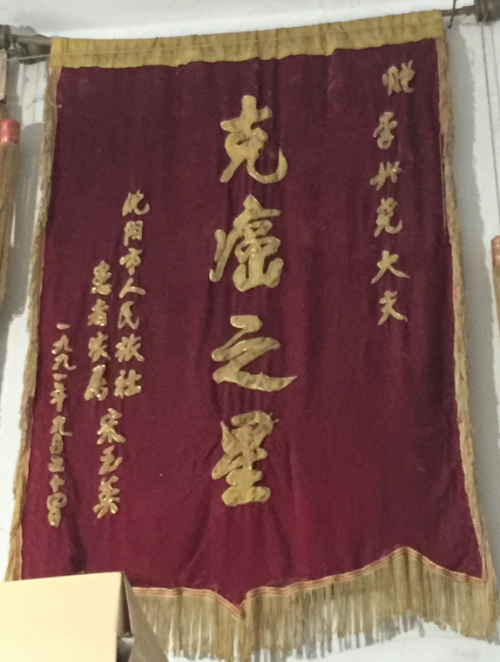 赠李大夫
克癌之星
沈阳市人民旅社
患者家属 宋玉英
一九九一年九月二十四日